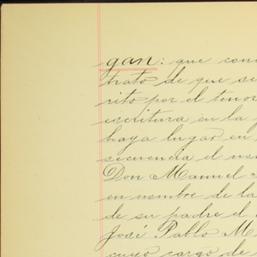 gan: que con
trato de que se
rito por el tenor
escritura en la
haya lugar en
secuencia el
Don Manuel
en nombre de la
de su padre el
José Pablo M
cuyo cargo de